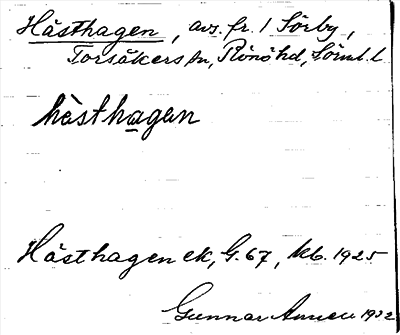 Hästhagen, avs. fr. 1 Sörby,
Torsåkers sn, Rönö hd, Sörml. l.
hèsthagen
Hästhagen ek, G. 67, kb. 1925
Gunnar 1932